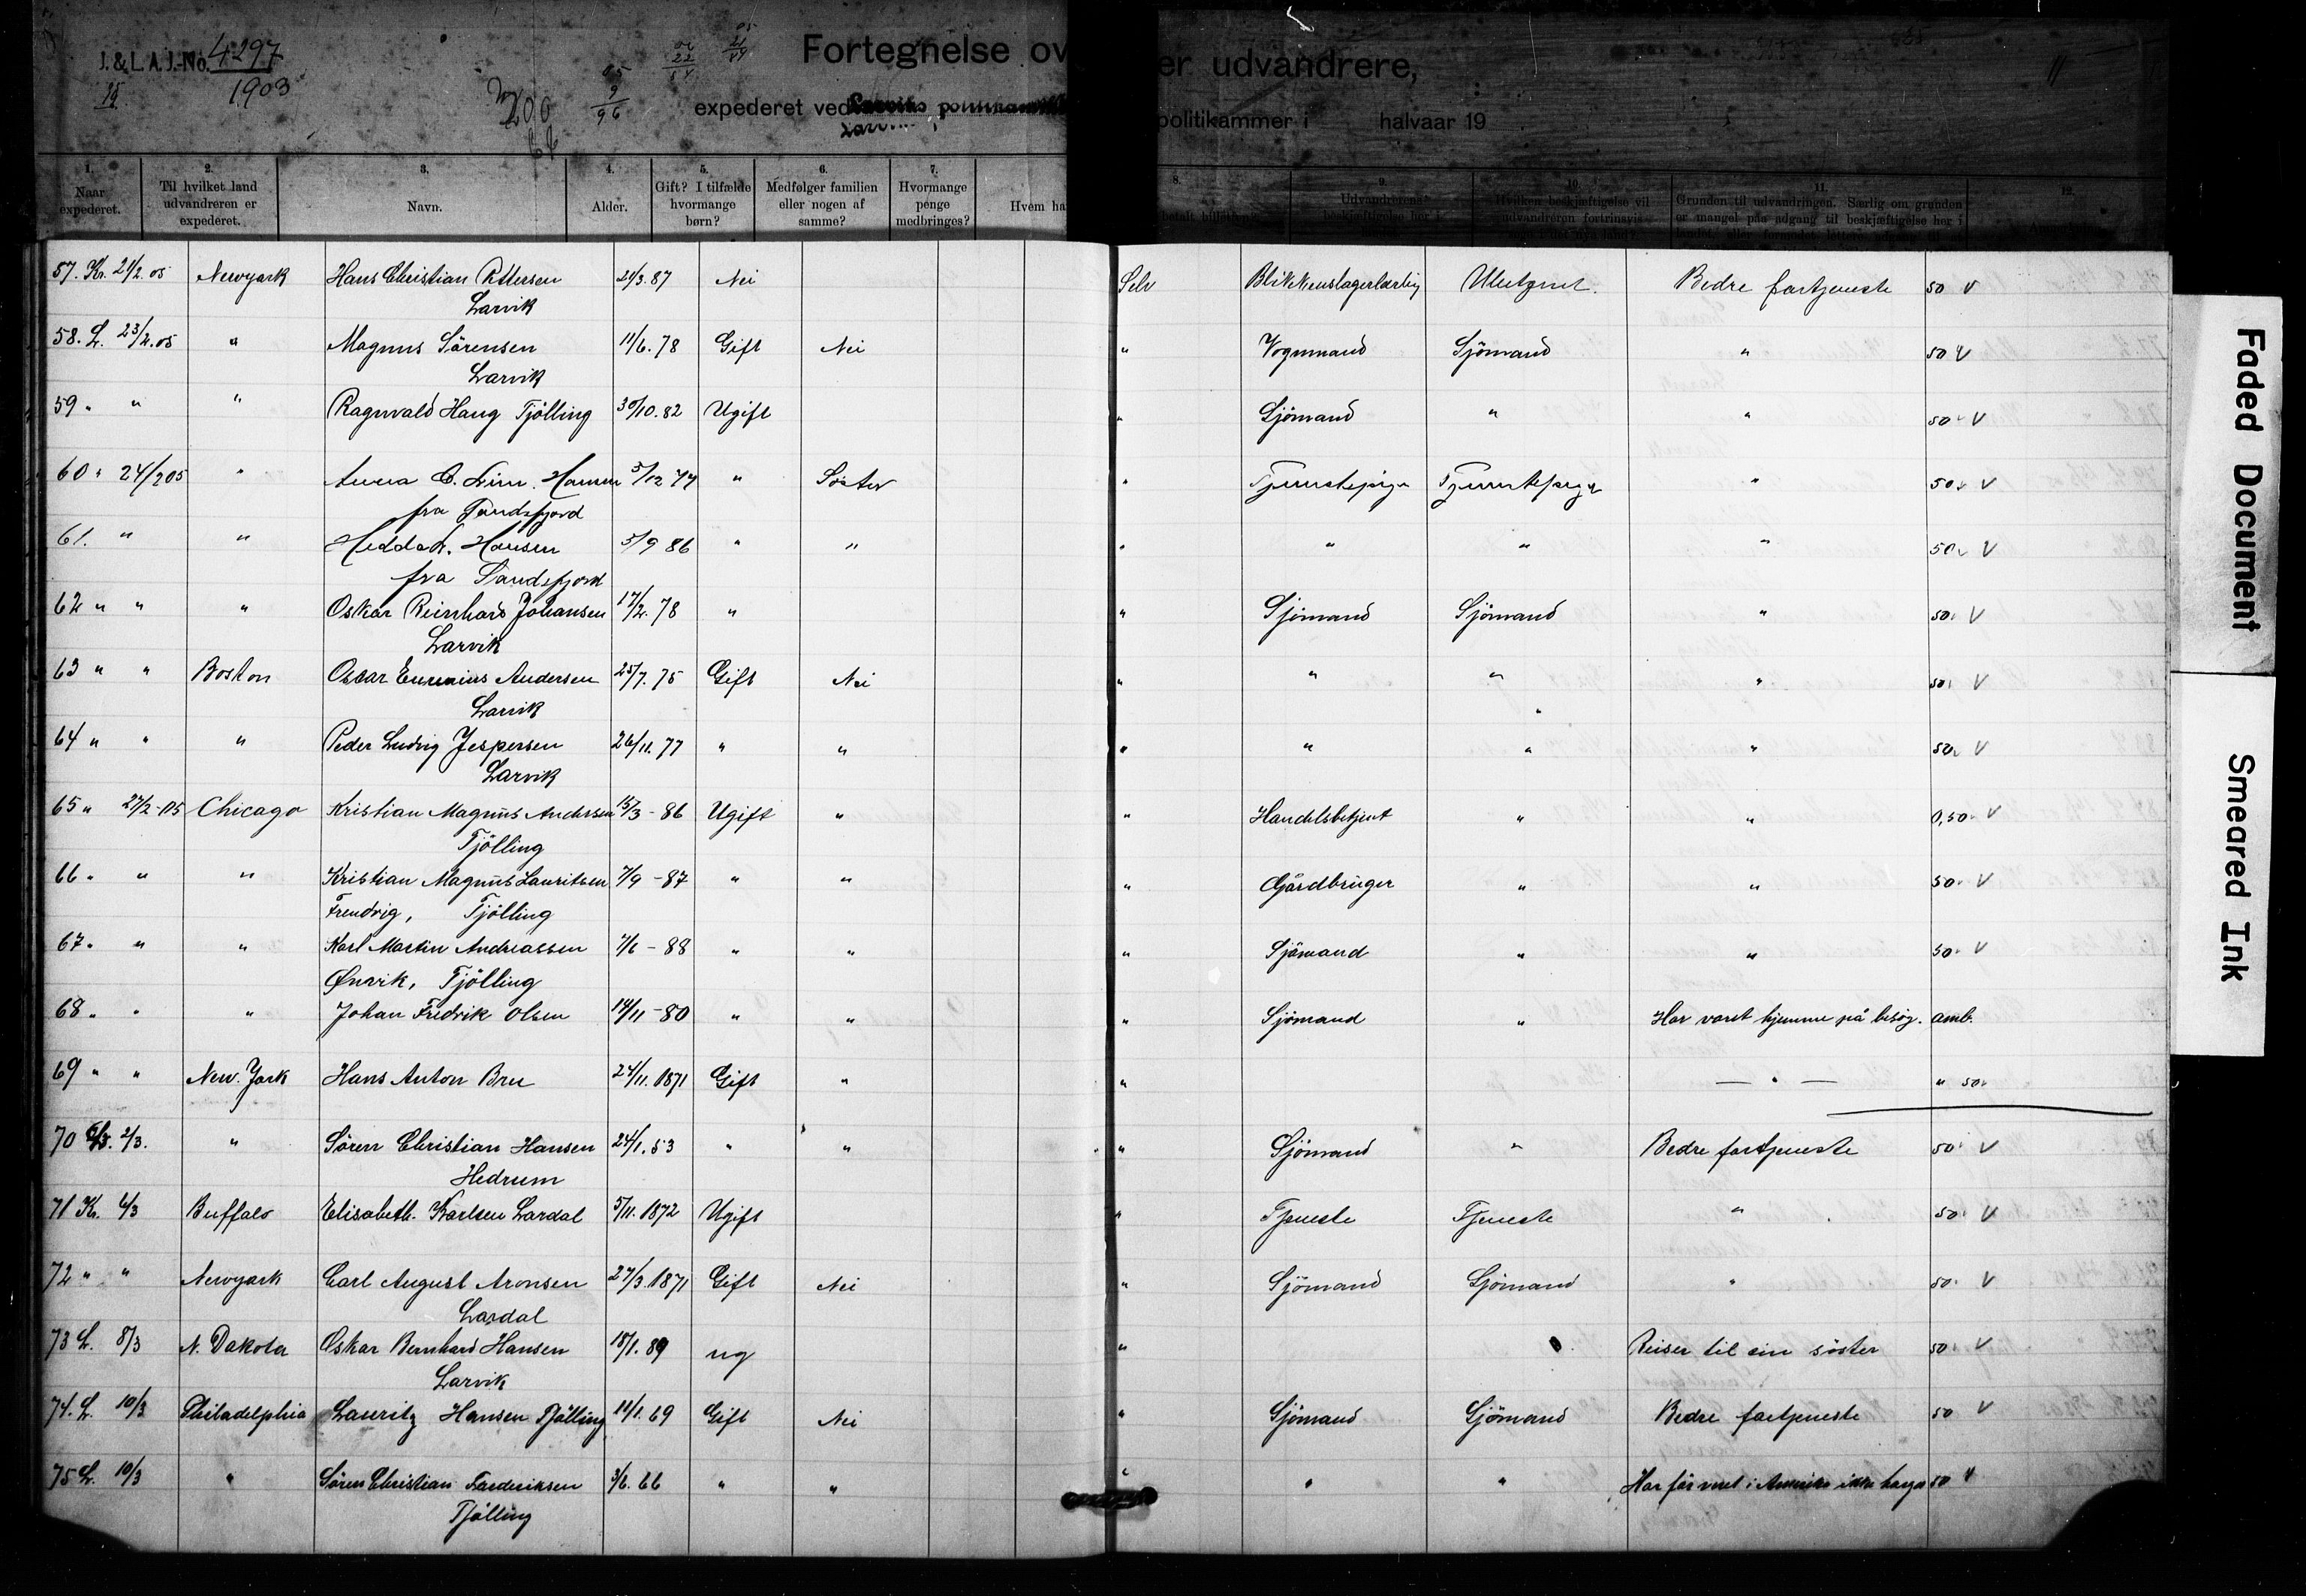 J. & L. A. J.-No. 4297
1903
15
200
66
05
9
96
Fortegnelse ov er udvandrere,
expederet ved Larviks politikammer
Larvik
politikammer i halvaar 19
1. Naar expederet.
2. Til hvilket land udvandreren er expederet.
3. Navn.
4. Alder.
5. Gift? I tilfælde hvormange børn?
6. Medfølger familien eller nogen af samme?
7. Hvormange penge medbringes?
8. Hvem ha betalt
9. Udvandrerens beskjæftigelse her i
10. Hvilken beskjæftigelse vil udvandreren fortrinsvis
11. Grunden til udvandringen. Særlig om grunden er mangel paa adgang til beskjæftigelse her i
12.
57. Kr. 21/2. 05 Newyork Hans Christian 21/3. 87 Nei Selv Blikkenslagerlærling Ubestemt. Bedre fortjeneste 50 V
Larvik
58. L. 23/2. 05 " Magnus Sörensen 11/6. 78 Gift Nei " Vognmand Sjömand " 50 V
Larvik
59 " " " Ragnvald Haug Tjölling 30/10. 82 Ugift " Sjömand " " 50 V
60 " 24/2 05 " Anna Hansen 5/12 " Söster " Tjenestepige Tjenestepige " 50 V
fra Sandefjord
61. " " Hedda Hansen 5/9 86 " " " " " " 50 V
fra Sandefjord
62 " " " Oskar Reinhard Johansen 17/2. 78 " " Sjömand Sjömand " 50 V
Larvik
63 " " Boston Oskar Andersen 25/7. 75 Gift Nei " " " " 50 V
Larvik
64 " " " Peder Ludvig Jespersen 26/11. 77 " " " " " " 50 V
Larvik
65 " 27/2-05 Chicago Kristian Magnus Andersen 15/3 - 86 Ugift " " Handelsbetjent " " 0,50 V
Tjölling
66 " " " Kristian Magnus Lauritsen 7/9 - 87 " " " Gårdbruger " " 50 V
Fremdvig, Tjölling
67 " " " Karl Martin Andreassen 7/6 - 88 " " " Sjömand " " 50 V
Ønvik, Tjölling
68 " " " Johan Fredrik Olsen 14/11 - 80 " " " Sjömand " Har været hjemme på besög. amb.
69 " " New. York Hans Anton Bru 24/11. 1871 Gift " " — " — " 50
70 2/3. " Sören Christian Hansen 24/1. 53 " " " Sjömand " Bedre fortjeneste 50 V
Hedrum
71 Kr. 6/3 Buffalo Elisabeth. Karlsen Lardal 5/11. 1872 Ugift " Tjeneste Tjeneste " 50 V
72 " " Newyork Carl August Aronsen 27/3. 1871 Gift Nei " Sjömand Sjömand " 50 V
Lardal
73 L. 8/3 N. Dakota Oskar Bernhard Hansen 18/1. 89 ug " Reiser til sin söster 50 V
Larvik
74. L. 10/3 Philadelphia Lauritz Hansen Tjölling 11/1. 69 Gift Nei " Sjömand Sjömand Bedre fortjeneste 50 V
75 L. 10/3 " Sören Christian Frederiksen 3/6. 66 " " " " " Har för veret i Amerika 50 V
Tjölling
Faded Document
Smeared Ink